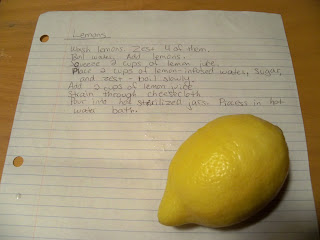 Lemons
Wash lemons. Zest 4 of them.
Boil water. Add lemons.
Squeeze 2 cups of lemon juice.
Place 2 cups of lemon-infused water, sugar,
and zest - boil slowly.
Add 2 cups of lemon juice
Strain through cheesecloth
Pour into hot sterilized jars. Process in hot
water bath.